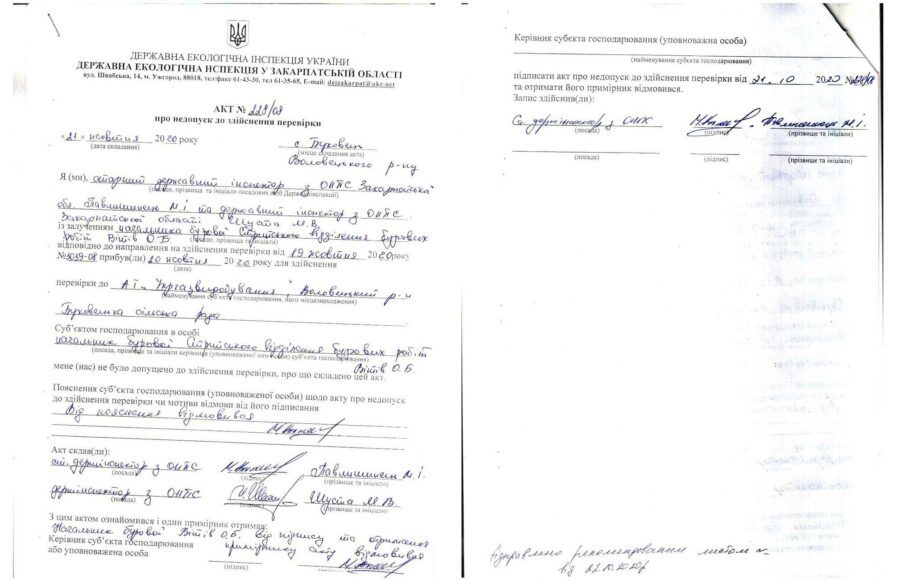 ДЕРЖАВНА ЕКОЛОГІЧНА ІНСПЕКЦІЯ УКРАЇНИ
ДЕРЖАВНА ЕКОЛОГІЧНА НСПЕКЦІЯ У ЗАКАРПАТСЬКІЙ ОБЛАСТІ
вул. Швабська, 14, м. Ужгород, 88018, тел/факс 61-43-30, тел 61-35-65, E-mail: deizakarpat@ukr.net
АКТ № 229/08
про недопуск до здійснення перевірки
«21» жовтня 2020 року
с Буковець
(дата складання)
(місце складання акта)
Воловецького р-ну
Я (ми), старший державний інспектор з ОНПС Закарпатської
(посади, прізвища та ініціали посадових осіб Держекоінспекції)
обл. Павлишинець М.І та державний інспектор з ОНПС
Закарпатської області Шуста М.В.
із залученням начальника бурової Стрийського відділення бурових
робіт Вітів О.Б
(посади, прізвища та ініціали)
відповідно до направлення на здійснення перевірки від 19 жовтня 2020 року
№3059-08 прибув(ли) 20 жовтня 2020 року для здійснення
(дата)
перевірки до АТ "Укргазвидобування", Воловецький р-н
(найменування суб'єкта господарювання, його місцезнаходження)
Буковецька сільська рада
Суб'єктом господарювання в особі
начальник бурової Стрийського відділення бурових робіт
(посада, прізвище та ініціали керівника (уповноваженої ним особи) суб'єкта господарювання)
Вітів О.Б.
мене (нас) не було допущено до здійснення перевірки, про що складено цей акт.
Пояснення суб'єкта господарювання (уповноваженої особи) щодо акту про недопуск
до здійснення перевірки чи мотиви відмови від його підписання
Від пояснення відмовився
Акт склав(ли):
ст. держінспектор з ОНПС Павлишинець М.І.
(посада) (підпис) (прізвище та ініціали)
держінспектор з ОНПС Шуста М.В.
(посада) (підпис) (прізвище та ініціали)
З цим актом ознайомився і один примірник отримав:
Начальник бурової Вітів О.Б. від підпису та отримання
Керівник суб'єкта господарювання примірнику акту відмовився
або уповноважена особа
(підпис)
Керівник субєкта господарювання (уповноважна особа)
(найменування субєкта господарювання)
підписати акт про недопуск до здійснення перевірки від 21.10 2020 №229/08
та отримати його примірник відмовився.
Запис здійснив(ли):
Ст. держінспектор з ОНПС Павлишинець М.І.
(посада) (підпис) (прізвище та ініціали)
(посада) (підпис) (прізвище та ініціали)
відправлено рекомендованим листом
від 22.10.2020р.